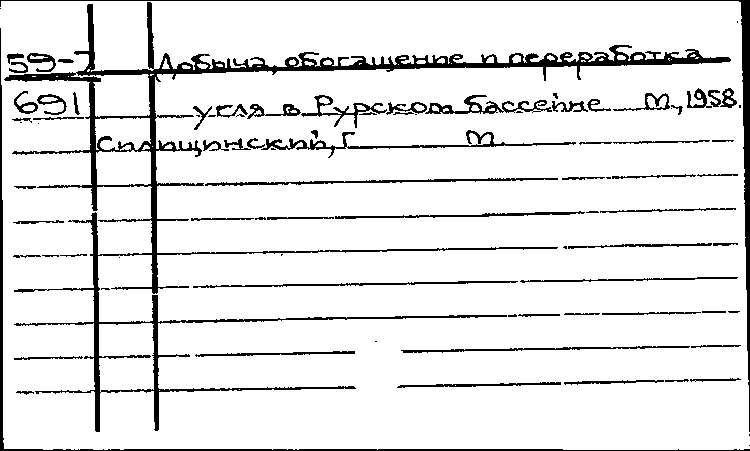 59-7 Добыча, обогащение и переработка
691 угля в Рурском бассейне М., 1958.
Силищинский, Г М.